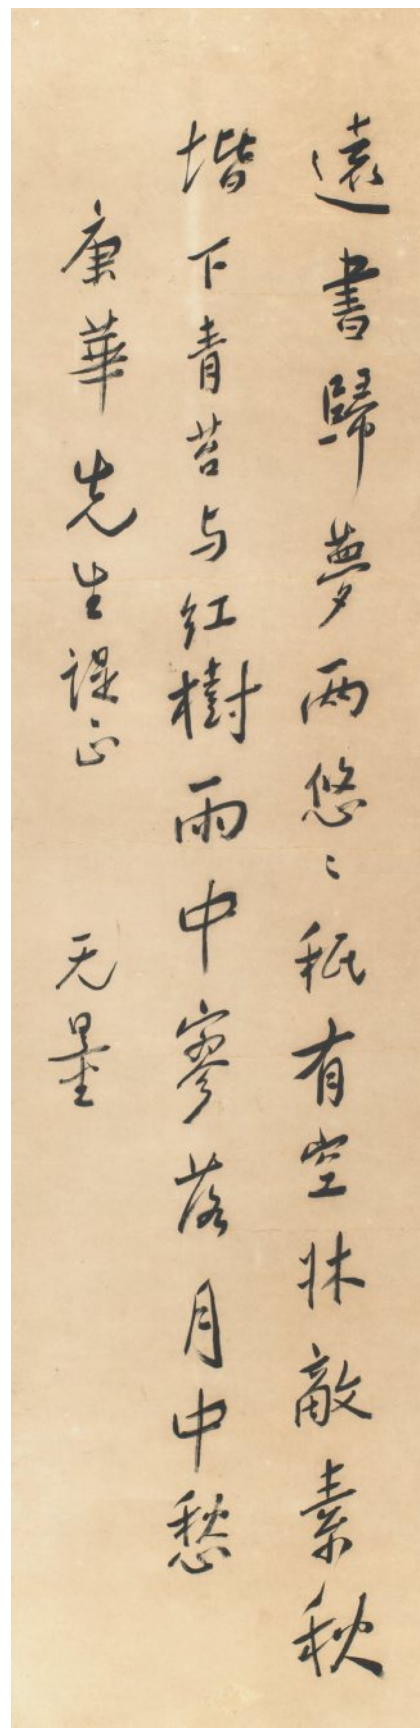 遠書歸夢兩悠〻秖有空牀敵素秋
堦下青苔与红樹雨中寥落月中愁
康華先生諟正
无量